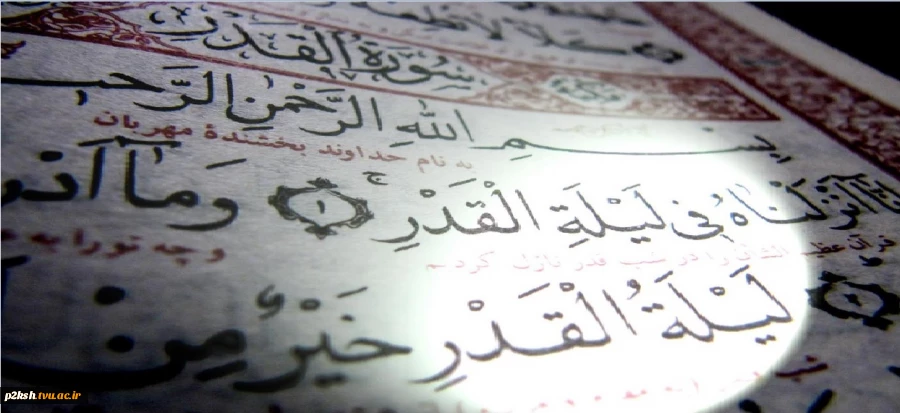 سُورَةُ الْقَدْرِ
بِسْمِ اللَّهِ الرَّحْمَٰنِ الرَّحِـ
به نام خداوند بخشندهٔ مهربان
إِنَّا أَنْزَلْنَاهُ فِي لَيْلَةِ الْقَدْرِ ۚ ﴿١﴾ وَمَا أَدْ
قرآن عظیم الشأن را در شب قدر نازل کردیم و چه تو را به
لَيْلَةُ الْقَدْرِ خَيْرٌ مِنْ
p2ksh.tvu.ac.ir